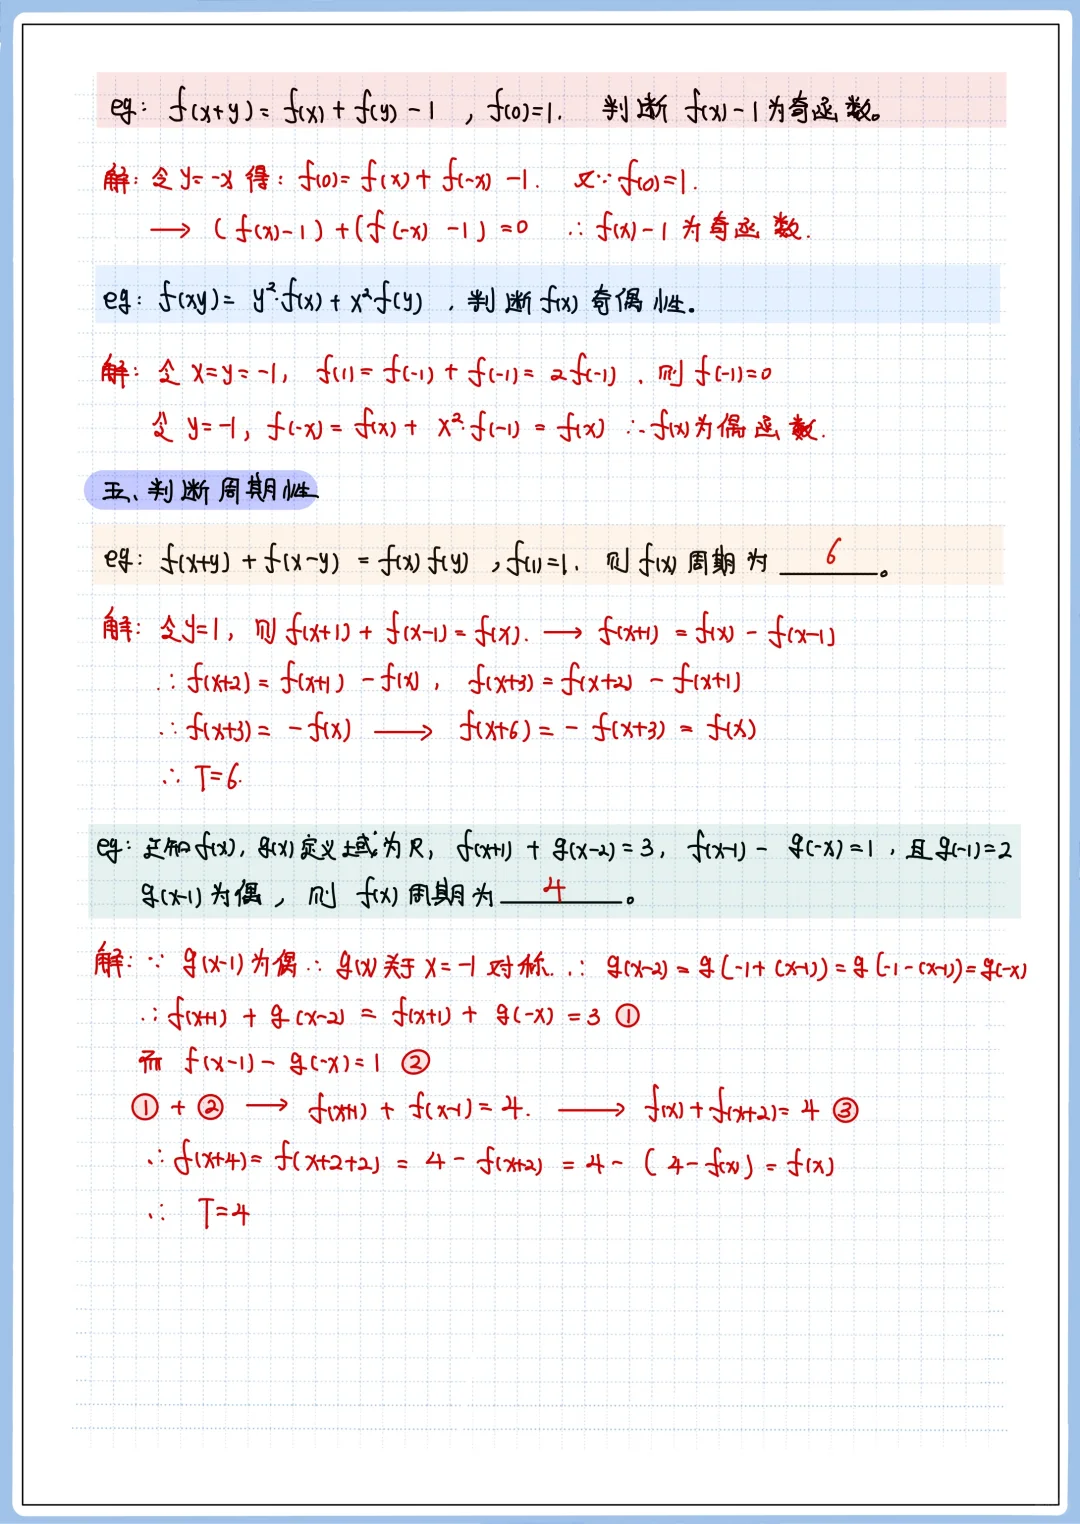 eg: f(x+y)=f(x)+f(y)-1 , f(0)=1. 判断 f(x)-1为奇函数。
解: 令y=-x 得: f(0)=f(x)+f(-x)-1. 又∵f(0)=1.
→ (f(x)-1)+(f(-x)-1)=0 ∴f(x)-1为奇函数.
eg: f(xy)=y²·f(x)+x²f(y) , 判断f(x)奇偶性。
解: 令 x=y=-1, f(1)=f(-1)+f(-1)=2f(-1) , 则f(-1)=0
令 y=-1, f(-x)=f(x)+x²·f(-1)=f(x) ∴f(x)为偶函数.
五、判断周期性
eg: f(x+y)+f(x-y)=f(x)f(y) , f(1)=1. 则f(x)周期为 6 。
解: 令y=1, 则f(x+1)+f(x-1)=f(x). → f(x+1)=f(x)-f(x-1)
∴f(x+2)=f(x+1)-f(x), f(x+3)=f(x+2)-f(x+1)
∴f(x+3)=-f(x) → f(x+6)=-f(x+3)=f(x)
∴ T=6.
eg: 已知f(x), g(x)定义域为R, f(x+1)+g(x-2)=3, f(x-1)-g(-x)=1 , 且g(-1)=2
g(x-1)为偶, 则 f(x)周期为 4 。
解: ∵ g(x-1)为偶∴g(x)关于x=-1对称. ∴ g(x-2)=g(-1+(x-1))=g(-1-(x-1))=g(-x)
∴f(x+1)+g(x-2)=f(x+1)+g(-x)=3 ①
而 f(x-1)-g(-x)=1 ②
①+② → f(x+1)+f(x-1)=4. → f(x)+f(x+2)=4 ③
∴f(x+4)=f(x+2+2)=4-f(x+2)=4-(4-f(x))=f(x)
∴ T=4